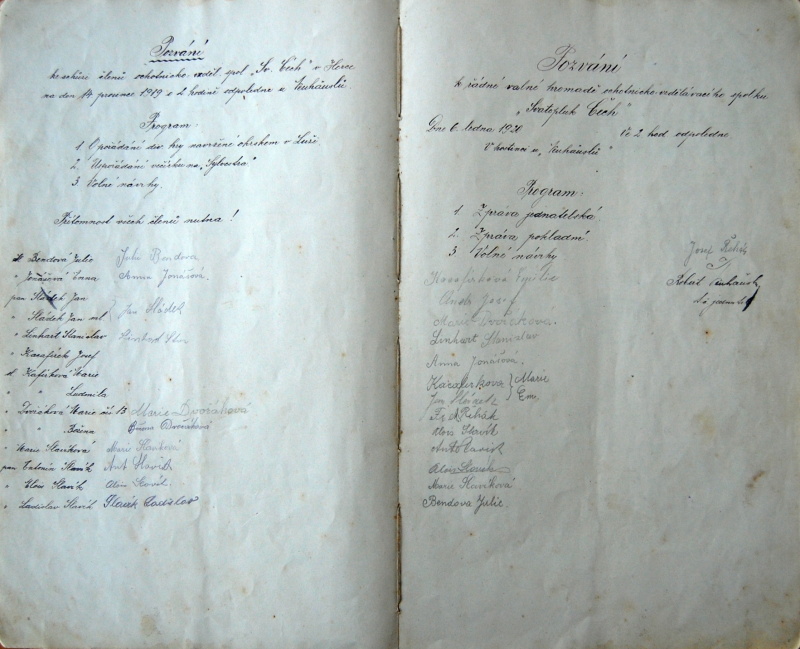 Pozvání
ke schůzi členů ochotnicko vzděl. spol. „Sv. Čech" v Horce
na den 14 prosince 1919 o 2 hodině odpoledne u Neuhäuslů.
Program:
1.Opořádání div. hry navržené okrskem v Luži
2. Uspořádání večírku na „Sylvestra"
3. Volné návrhy.
Přítomnost všech členů nutna!
sl. Bendová Julie Julie Bendova
" Jonášová Anna Anna Jonášová.
pan Sládek Jan
" Sládek Jan ml. Jan Sládek
" Linhart Stanislav Linhart Stan.
" Kasafírek Josef
sl. Kafírková Marie
" " Ludmila
" Dvořáková Marie čís. 13 Marie Dvořáková
" " Božena Božena Dvořáková
" Marie Slavíková Marie Slavíková
pan Antonín Slavík Ant Slavík
" Alois Slavík Alois Slavík
" Ladislav Slavík Slavík Ladislav
Pozvání
k řádné valné hromadě ochotnicko vzdělávacího spolku
„Svatopluk Čech"
Dne 6. ledna 1920 Ve 2 hod odpoledne
V hostinci u „Neuhäuslů"
Program:
1. Zpráva jednatelská
2. Zpráva pokladní
3. Volné návrhy
Josef
Marie Dvořáková.
Linhart Stanislav
Anna Jonášová.
Marie
Jan Sládek Em.
Alois Slavík
Marie Slavíková
Bendova Julie